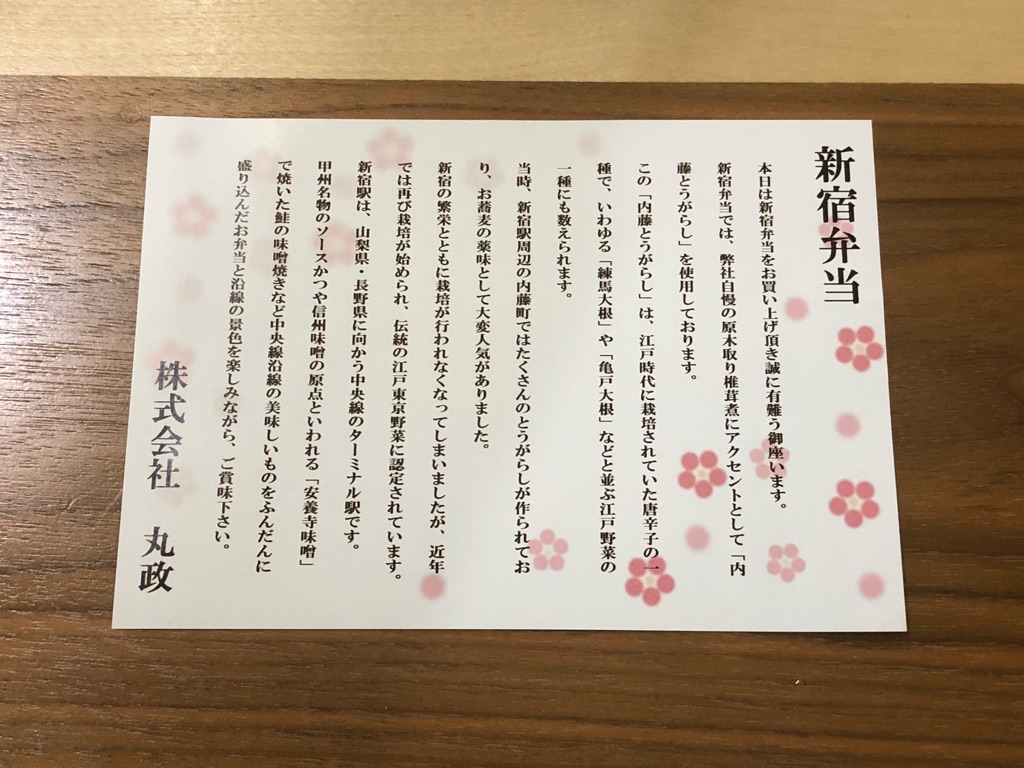 新宿弁当
本日は新宿弁当をお買い上げ頂き誠に有難う御座います。
新宿弁当では、弊社自慢の原木取り椎茸煮にアクセントとして「内
藤とうがらし」を使用しております。
この「内藤とうがらし」は、江戸時代に栽培されていた唐辛子の一
種で、いわゆる「練馬大根」や「亀戸大根」などと並ぶ江戸野菜の
一種にも数えられます。
当時、新宿駅周辺の内藤町ではたくさんのとうがらしが作られてお
り、お蕎麦の薬味として大変人気がありました。
新宿の繁栄とともに栽培が行われなくなってしまいましたが、近年
では再び栽培が始められ、伝統の江戸東京野菜に認定されています。
新宿駅は、山梨県・長野県に向かう中央線のターミナル駅です。
甲州名物のソースかつや信州味噌の原点といわれる「安養寺味噌」
で焼いた鮭の味噌焼きなど中央線沿線の美味しいものをふんだんに
盛り込んだお弁当と沿線の景色を楽しみながら、ご賞味下さい。
株式会社 丸政